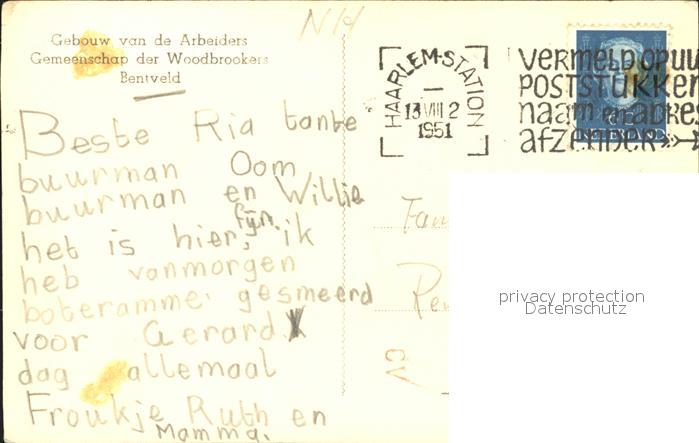 Gebouw van de Arbeiders
Gemeenschap der Woodbrookers
Bentveld
NH
HAARLEM-STATION
13 VIII 2
1951
VERMELD OP UW
POSTSTUKKEN
naam en adres
afzender
NEDERLAND
Beste Ria tante
buurman Oom
buurman en Willie
het is hier fijn, ik
heb vanmorgen
boteramme gesmeerd
voor Gerard
dag allemaal
Froukje Ruth en
Mamma.
Fam
privacy protection
Datenschutz